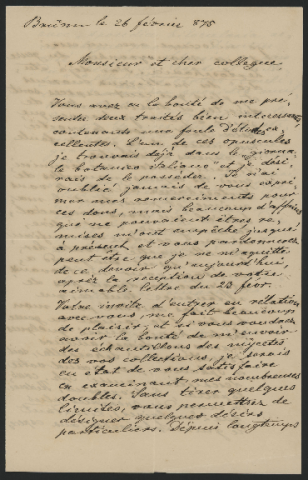 Bremen le 26 février 1878
Monsieur et cher collegue,
Vous avez eu la bonté de me pré-
senter deux traités bien intéressants,
contenants une foule d'études ex-
cellentes. L'un de ces opuscules
je trouvais déjà dans le giornale
botanico italiano et je dési-
rais de le posséder. Je n'ai
oublié jamais de vous expri-
mer mes remerciments pour
ces dons, mais beaucoup d'affaires
qui ne pouvaient êtres re-
mises m'ont empêché jusqu'
à présent, et vous pardonnerez
peut être que je ne m'acquitte
de ce devoir qu'aujourd'hui,
après la reception de votre
aimable lettre du 23 fevr.
Votre invite d'entrer en relation
avec vous, me fait beaucoup
de plaisir, et si vous voudrez
avoir la bonté de m'envoyer
des échantillons des mycetes
de vos collections, je serais
en état de vous satisfaire
en examinant mes nombreuses
doubles. Sans tirer quelques
limites, vous permettrez de
désigner quelques désirs
particuliers. Depuis longtemps